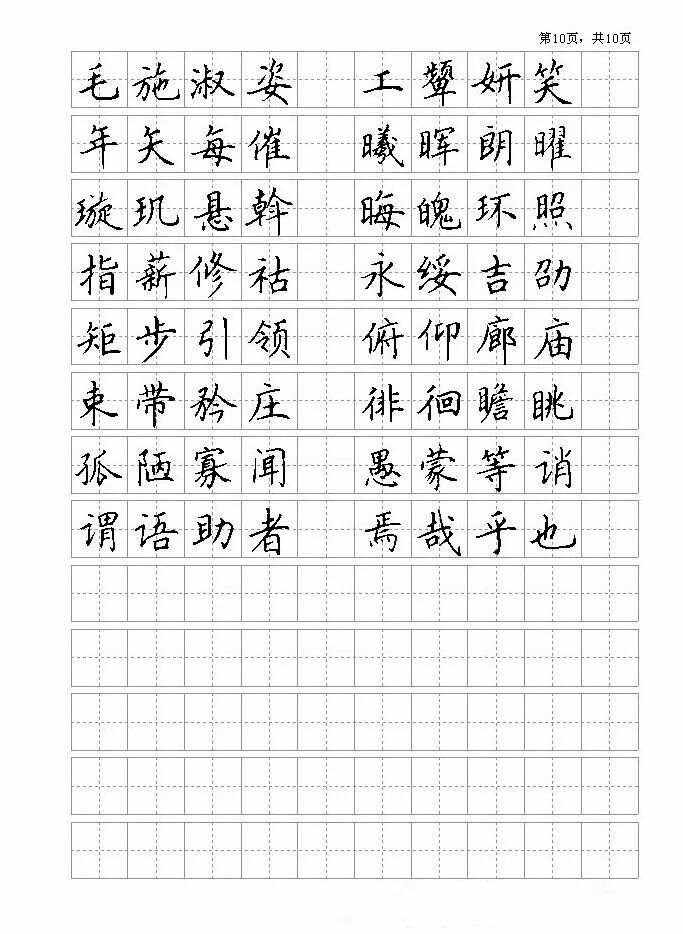 第10页，共10页
毛施淑姿 工颦妍笑
年矢每催 曦晖朗曜
璇玑悬斡 晦魄环照
指薪修祜 永绥吉劭
矩步引领 俯仰廊庙
束带矜庄 徘徊瞻眺
孤陋寡闻 愚蒙等诮
谓语助者 焉哉乎也